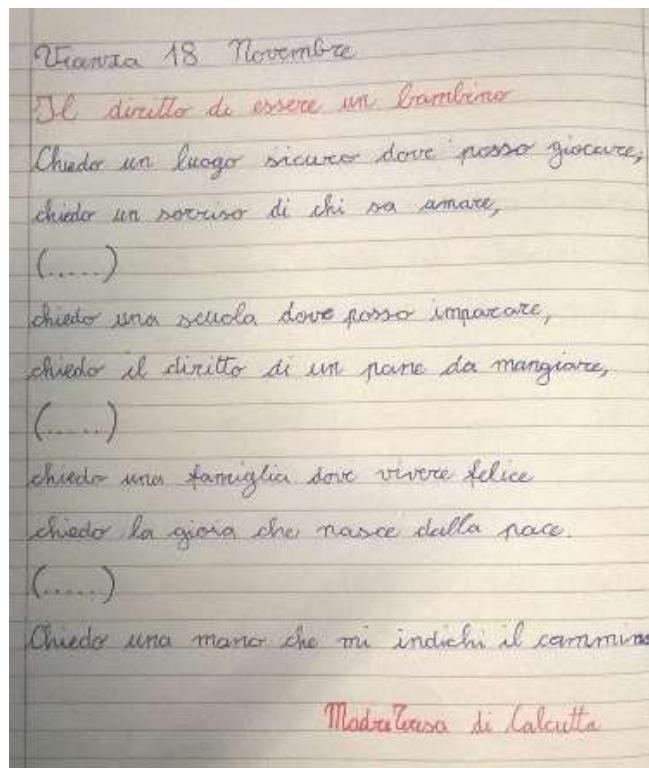 Vianza 18 Novembre
Il diritto di essere un bambino
Chiedo un luogo sicuro dove posso giocare,
chiedo un sorriso di chi sa amare,
(.....)
chiedo una scuola dove posso imparare,
chiedo il diritto di un pane da mangiare,
(.....)
chiedo una famiglia dove vivere felice
chiedo la gioia che nasce dalla pace.
(.....)
Chiedo una mano che mi indichi il cammino
Madre Teresa di Calcutta